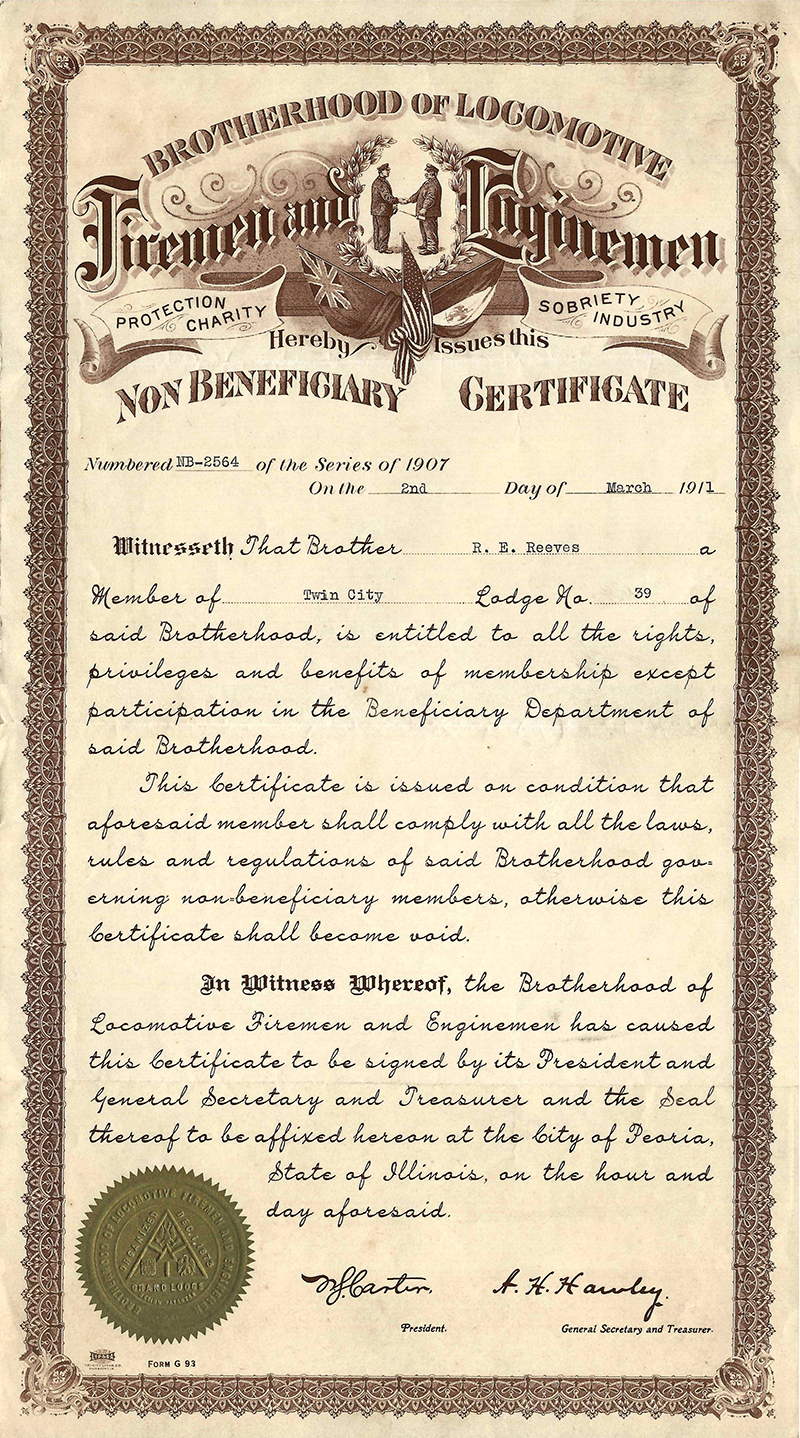 BROTHERHOOD OF LOCOMOTIVE
Firemen and Enginemen
PROTECTION
CHARITY
SOBRIETY
INDUSTRY
Hereby Issues this
NON BENEFICIARY CERTIFICATE
Numbered NB-2564 of the Series of 1907
On the 2nd Day of March 1911
Witnesseth That Brother R. E. Reeves a
Member of Twin City Lodge No. 39 of
said Brotherhood, is entitled to all the rights,
privileges and benefits of membership except
participation in the Beneficiary Department of
said Brotherhood.
This Certificate is issued on condition that
aforesaid member shall comply with all the laws,
rules and regulations of said Brotherhood gov=
erning non=beneficiary members, otherwise this
Certificate shall become void.
In Witness Whereof, the Brotherhood of
Locomotive Firemen and Enginemen has caused
this Certificate to be signed by its President and
General Secretary and Treasurer and the Seal
thereof to be affixed hereon at the City of Peoria,
State of Illinois, on the hour and
day aforesaid.
BROTHERHOOD OF LOCOMOTIVE FIREMEN AND ENGINEMEN
ORGANIZED DEC. 1, 1873
GRAND LODGE
W. S. Carter.
A. H. Hawley.
President.
General Secretary and Treasurer.
FORM G 93